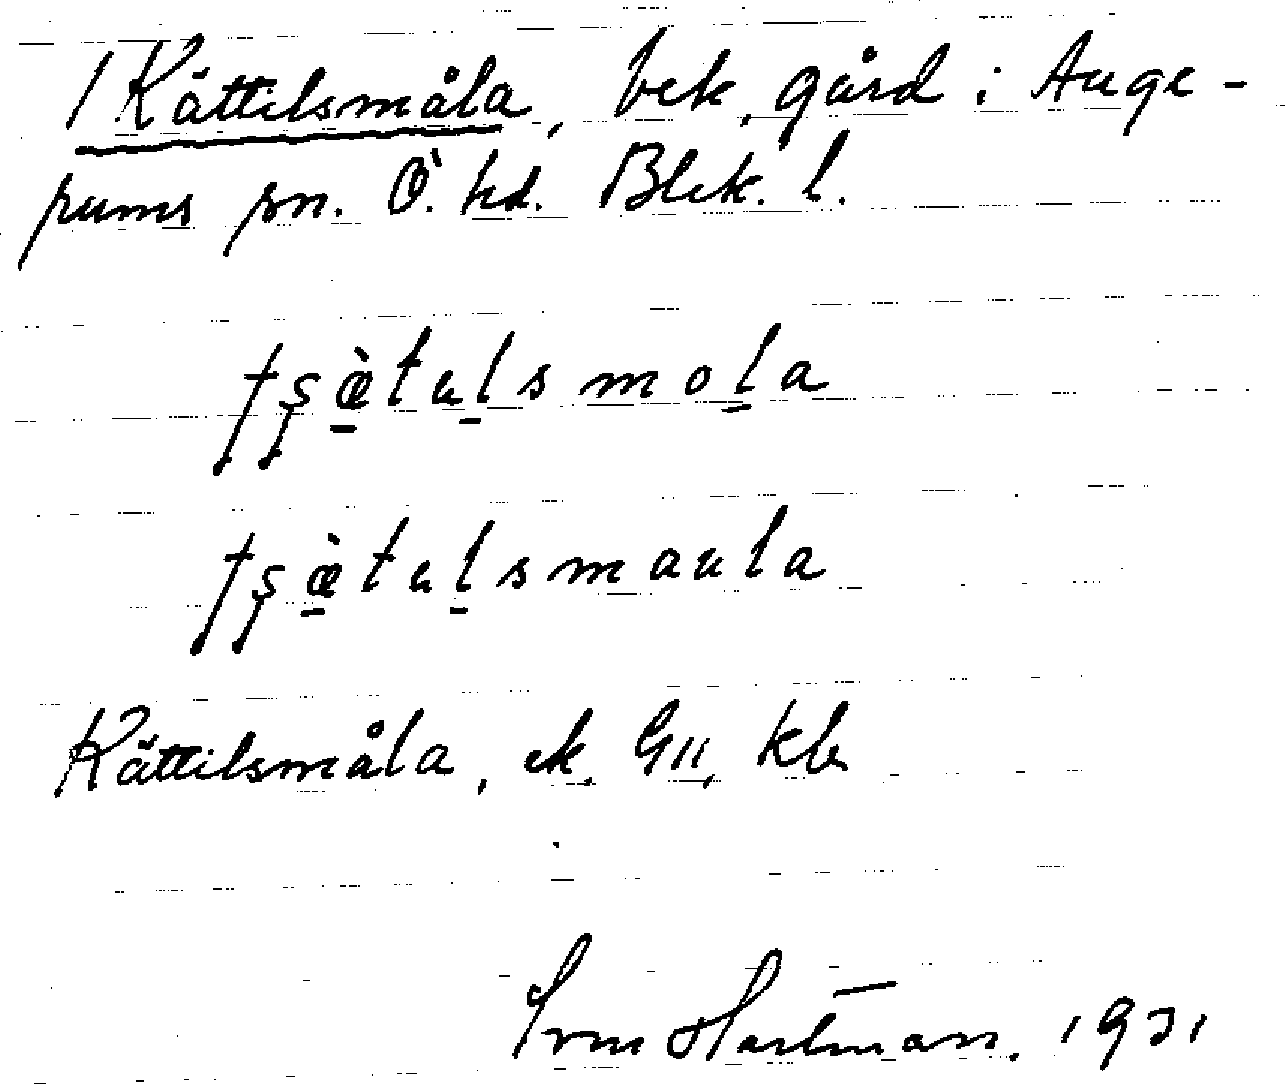 / Kättilsmåla, bek. gård i Auge-
pums sn. Ö. hd. Blek. l.
tʂæ̠̀tul̠smol̠a
tʂæ̠̀tul̠smaula
Kättilsmåla, ek. GII, kb
Hartman. 1931